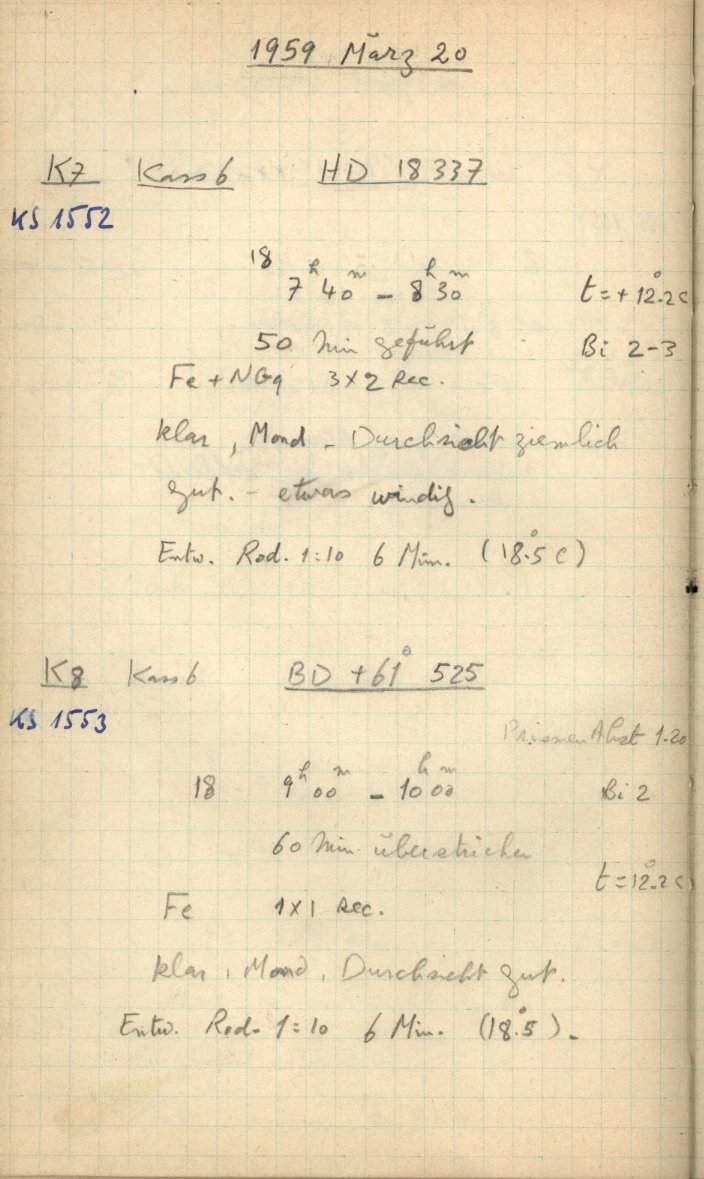 1959 März 20
K7 Kass 6 HD 18337
KS 1552
18 7h 40m – 8h 30m t = + 12.°2 C
50 Min geführt Bi 2-3
Fe + NGq 3x2 sec.
klar, Mond – Durchsicht ziemlich
gut. – etwas windig.
Entw. Rod. 1:10 6 Min. (18.°5 C)
K8 Kass 6 BD +61° 525
KS 1553
Prismen Abst 1.20
18 9h 00m – 10h 00m Bi 2
60 Min. überstrichen
t = 12.°2 C
Fe 1x1 sec.
klar, Mond, Durchsicht gut.
Entw. Rod. 1:10 6 Min. (18.°5).